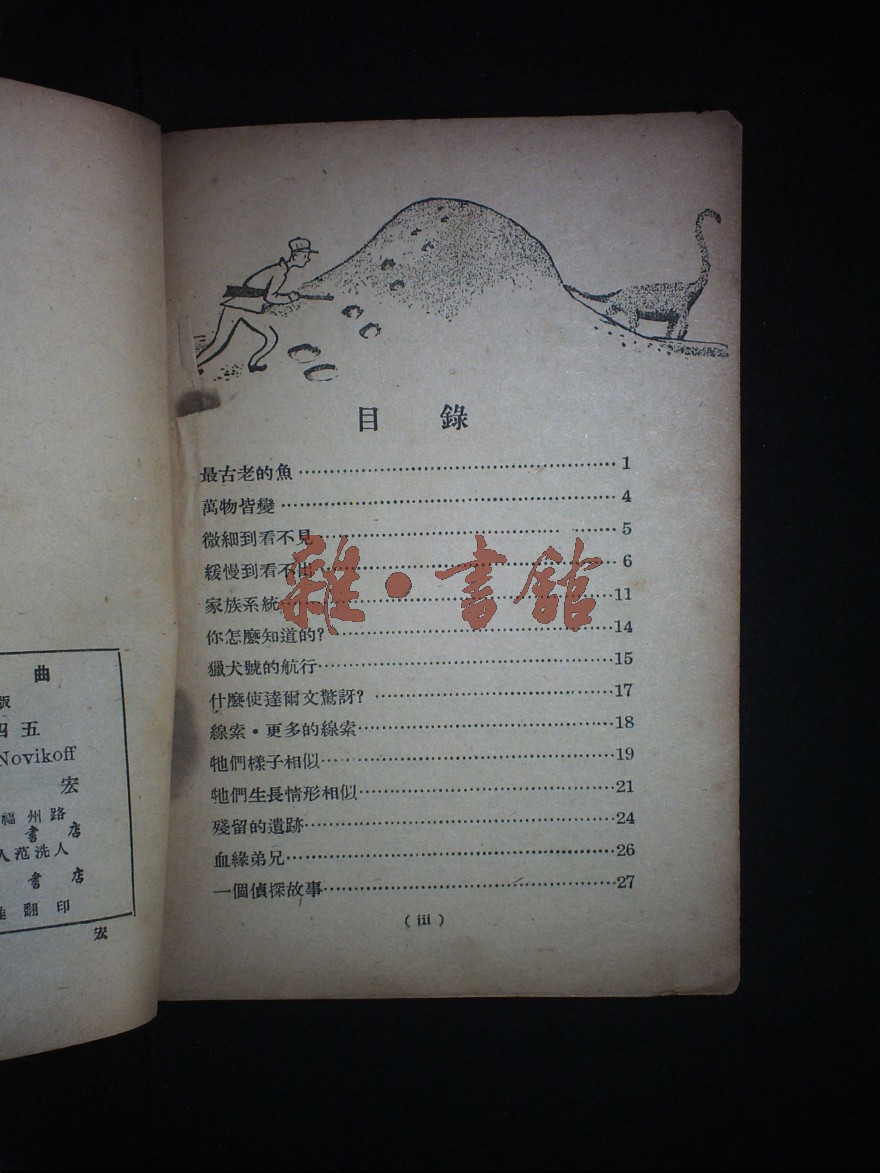 曲
版
四五
Novikoff
宏
福州路
書店
人范洗人
書店
翻印
宏
目錄
最古老的魚 1
萬物皆變 4
微細到看不見 5
緩慢到看不出 6
家族系統 11
你怎麼知道的? 14
獵犬號的航行 15
什麼使達爾文驚訝? 17
線索・更多的線索 18
牠們樣子相似 19
牠們生長情形相似 21
殘留的遺跡 24
血緣弟兄 26
一個偵探故事 27
( iii )
雜・書館